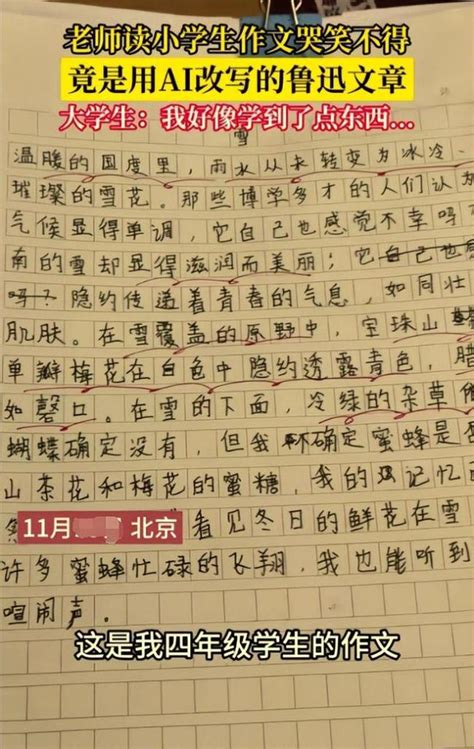 老师读小学生作文哭笑不得
竟是用AI改写的鲁迅文章
大学生：我好像学到了点东西...
雪
温暖的国度里，雨水从未转变为冰冷、
璀璨的雪花。那些博学多才的人们认为
气候显得单调，它自己也感觉不幸吗
南的雪却显得滋润而美丽；它自己也感
吗？隐约传递着青春的气息，如同壮
肌肤。在雪覆盖的原野中，宝珠山
单瓣梅花在白色中隐约透露青色，腊
如磬口。在雪的下面，冷绿的杂草
蝴蝶确定没有，但我不确定蜜蜂是否
山茶花和梅花的蜜糖，我的记忆
11月 北京
看见冬日的鲜花在雪
许多蜜蜂忙碌的飞翔，我也能听到
喧闹声。
这是我四年级学生的作文